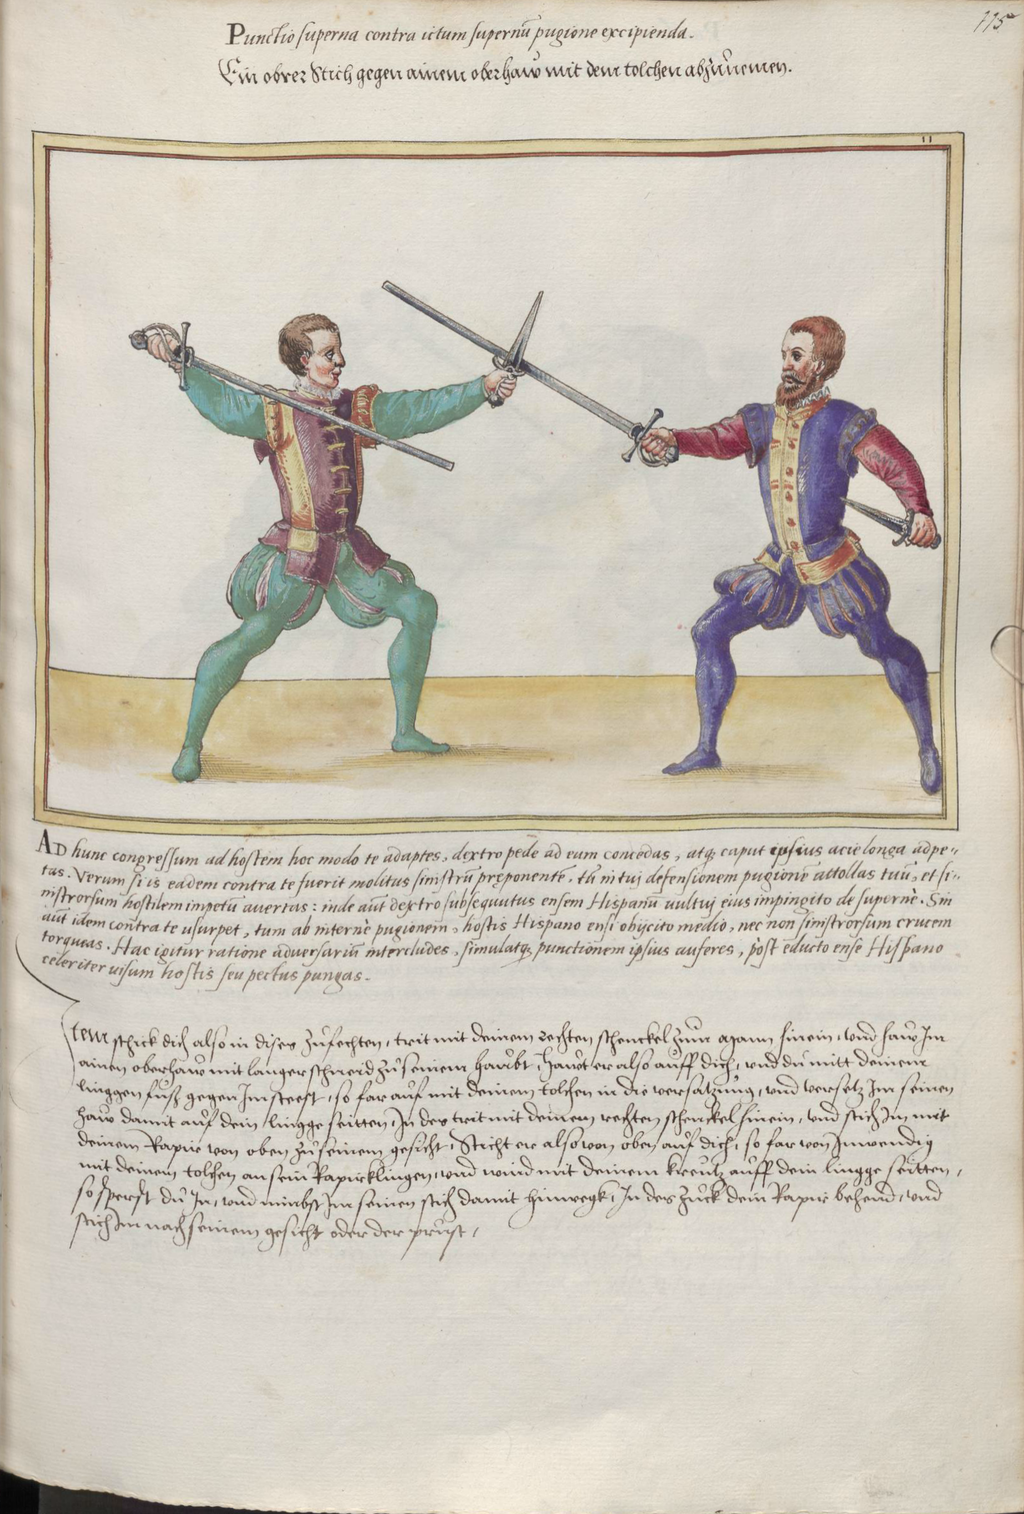 115
Punctio superna contra ictum supernū pugione excipienda.
Ein obrer Stich gegen ainem oberhaw mit dem tolchen abzunemen.
11
AD hunc congressum ad hostem hoc modo te adaptes, dextro pede ad eum concedas, atq; caput ipsius acie longa adpe-
tas. Verum si is eadem contra te fuerit molitus sinistrū pręponentē, tū in tuj defensionem pugione attollas tuū, et si-
nistrorsum hostilem impetū auertas: inde aūt dextro subsequutus ensem Hispanū uultuj eius impingito de supernè. Sin
aūt idem contra te usurpet, tum ab internè pugionem, hostis Hispano ensi obijcito medio, nec non sinistrorsum crucem
torqueas. Hac igitur ratione aduersariū intercludes, simulatq; punctionem ipsius auferes, post educto ense Hispano
celeriter uisum hostis seu pectus pungas.
Item schick dich also in dises zufechten, trit mit deinem rechten schenckel zum again hinein, vnd haw Im
ainen oberhaw mit langer schneid zu seinem haubt, hawt er also auff dich, vnd du mitt deinem
linggen fuß gegen Im steest, so far auf mit deinem tolchen in die versatzung, vnd versetz Im seinen
haw damit auf dein lingge seitten, In des trit mit deinem rechten schenckel hinein, vnd stich In mit
deinem Rapir von oben zu seinem gesicht, Sticht er also von oben auf dich, so far von Inwendig
mit deinem tolchen an sein Rapirklingen, vnd wind mit deinem kreutz auff dein lingge seitten,
so sperst du In, vnd nimbst Im seinen stich damit hinwegk, In des zuck dein Rapir behend, vnd
stich Im nach seinem gesicht oder der prust,